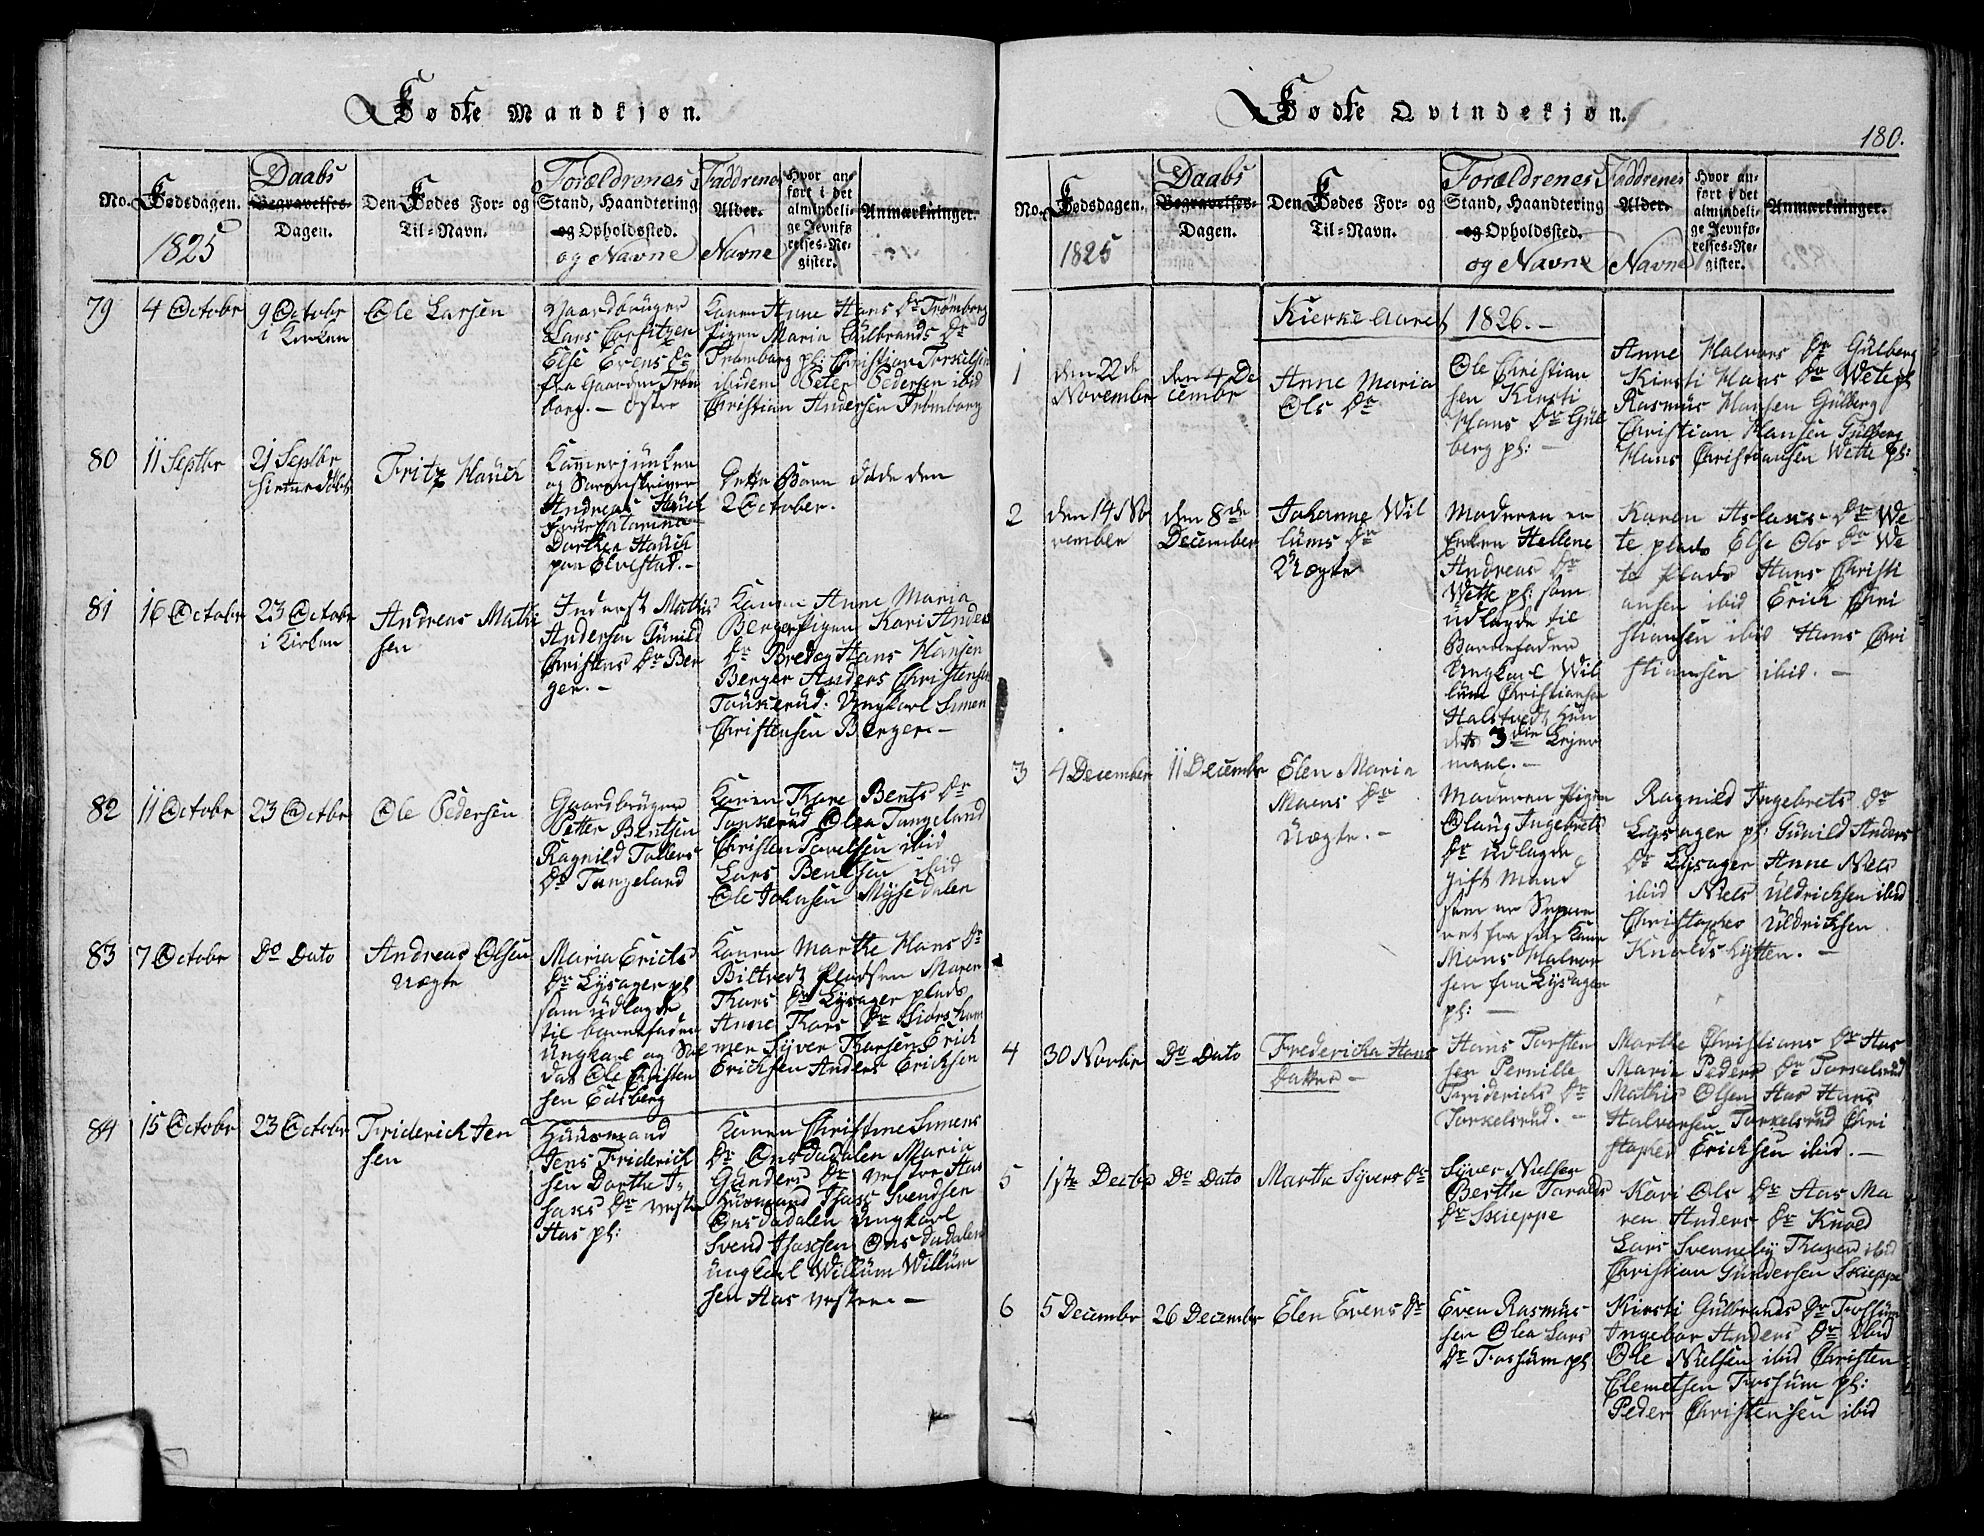 Fødte Mandkjøn.
No.
Fødsdagen.
1825
Daabs
Begravelses-
Dagen.
Den Fødes For- og
Til-Navn.
Forældrenes
Stand, Haandtering
og Opholdssted.
og Navne
Faddrenes
Alder.
Navne
Hvor an-
ført i det
almindeli-
ge Jevnfø-
relses-Re-
gister.
Anmærkninger.
79
4 Octobr
9 Octobr
i Kirken
Ole Larsen
Gaardbruger
Lars Corfitzen
Else Evens Dr
fra Gaarden Tröm
borg. – østre
Konen Anne Hans Dr Trömborg
Pigen Maria Gulbrands Dr
Tromborg pl: Christian Torkelsen
ibidem Peter Pedersen ibid
Christian Andersen Trömborg
80
11 Septbr
21 Septbr
hiemmedöbt
Fritz Hauch
Kamerjunker
og Sorenskriver
Andreas Hauch
Frue Catarina
Dorthea Hauch
paa Elvestad. –
Dette Barn döde den
2 October.
81
16 Octobr
23 Octobr
i Kirken
Andreas Mathi
sen
Inderst Mathis
Andersen Gunild
Christens Dr Ber
ger. –
Konen Anne Maria
Berger Pigen Kari Anders
Dr Bredog Hans Hansen
Berger Anders Christensen
Toukerud. Ungkarl Simen
Christensen Berger. –
82
11 Octobr
23 Octbr
Ole Pedersen
Gaardbruger
Petter Bentsen
Ragnild Tollers
Dr Tangeland
Konen Thore Bents Dr
Tonkerud Olea Tangeland
Christen Povelsen ibid
Lars Bentsen ibid
Ole Johnsen Mysedalen
83
7 Octobr
Do Dato
Andreas Olsen
Uægte
Maria Erichs
Dr Lysager pl
som udlagde
til barnefader
Ungkarl og Sol
dat Ole Christen
sen Edsberg
Konen Marthe Hans Dr
Biltvedt Pladsen Maren
Thors Dr Lysager plads
Anne Thors Dr Siorsham
mer Syver Thorsen Erich
Erichsen Anders Erichsen
84
15 Octobr
23 Octobr
Friderich Jen
sen
Huusmand
Jens Friderich
sen Dorthe I-
saks Dr vestre
Has pl:
Konen Christine Simens
Dr Onsdadalen Maria
Gunders Dr vestre Has
Huusmand Isach Svendsen
Onsdadalen Ungkarl
Svend Isachsen Onsdadalen
Ungkarl Willum Willum
sen Has vestre. –
Fødte Qvindekjøn.
180.
No.
Fødsdagen.
1825
Daabs
Begravelses-
Dagen.
Den Fødes For- og
Til-Navn.
Forældrenes
Stand, Haandtering
og Opholdssted.
og Navne
Faddrenes
Alder.
Navne
Hvor an-
ført i det
almindeli-
ge Jevnfø-
relses-Re-
gister.
Anmærkninger.
Kierke Aaret 1826. –
1
den 22de
November
den 4 De
cembr
Anne Maria
Ols Dr
Ole Christian
sen Kirsti
Hans Dr Gul
berg pl: –
Anne Halvors Dr Gulberg
Kirsti Hans Dr Wete pl
Rasmus Hansen Gulberg
Christian Hansen Gulberg
Hans Christiansen Wette pl:
2
den 14 No
vember
den 8de
December
Johanne Wil
lums Dr
Uægte
Moderen er
Enken Hellene
Andreas Dr
Wette pl: som
udlagde til
Barnefader
Ungkarl Wil
lum Christiansen
Halstvedt hun
dets 3die Leyer
maal. –
Karen Aslaks Dr We
te plads Else Ols Dr We
te Plads Hans Christi
ansen ibid Erich Chri
stiansen ibid Hans Chri
stiansen ibid. –
3
4 December
11 Decembr
Elen Maria
Moens Dr
Uægte. –
Moderen Pigen
Olaug Ingebrets
Dr udlagde
gift Mand
som er Sepere
ret fra sin Kone
Mons Halvor
sen fra Lysager
pl: –
Ragnild Ingebrets Dr
Lysager pl: Gunild Anders
Dr Lysager Anne Niels
ibid Niels Uldrichsen ibid
Christopher Uldrichsen
Knoldshytten. –
4
30 Novbr
Do Dato
Fredericha Hans
Datter –
Hans Torsten
sen Pernille
Friderichs Dr
Torkelsrud. –
Marthe Christians Dr Has
Maria Peders Dr Torkelsrud
Mathis Olsen Has Hans
Halvorsen Torkelsrud Chri
stopher Erichsen ibid. –
5
1ste Decbr
Do Dato
Marthe Syvers Dr
Syver Nielsen
Berthe Toralds
Dr Skieppe
Kari Ols Dr Has Ma
ren Anders Dr Knoed
Lars Svenneby Thoren ibid
Christian Gundersen Skieppe
6
5 December
26 Decembr
Elen Evens Dr
Even Rasmus
sen Olea Lars
Dr Fossum pl
Kirsti Gulbrands Dr Fossum
Ingebor Anders Dr ibid
Ole Nielsen ibid Christen
Clemetsen Fossum pl:
Peder Christensen ibid